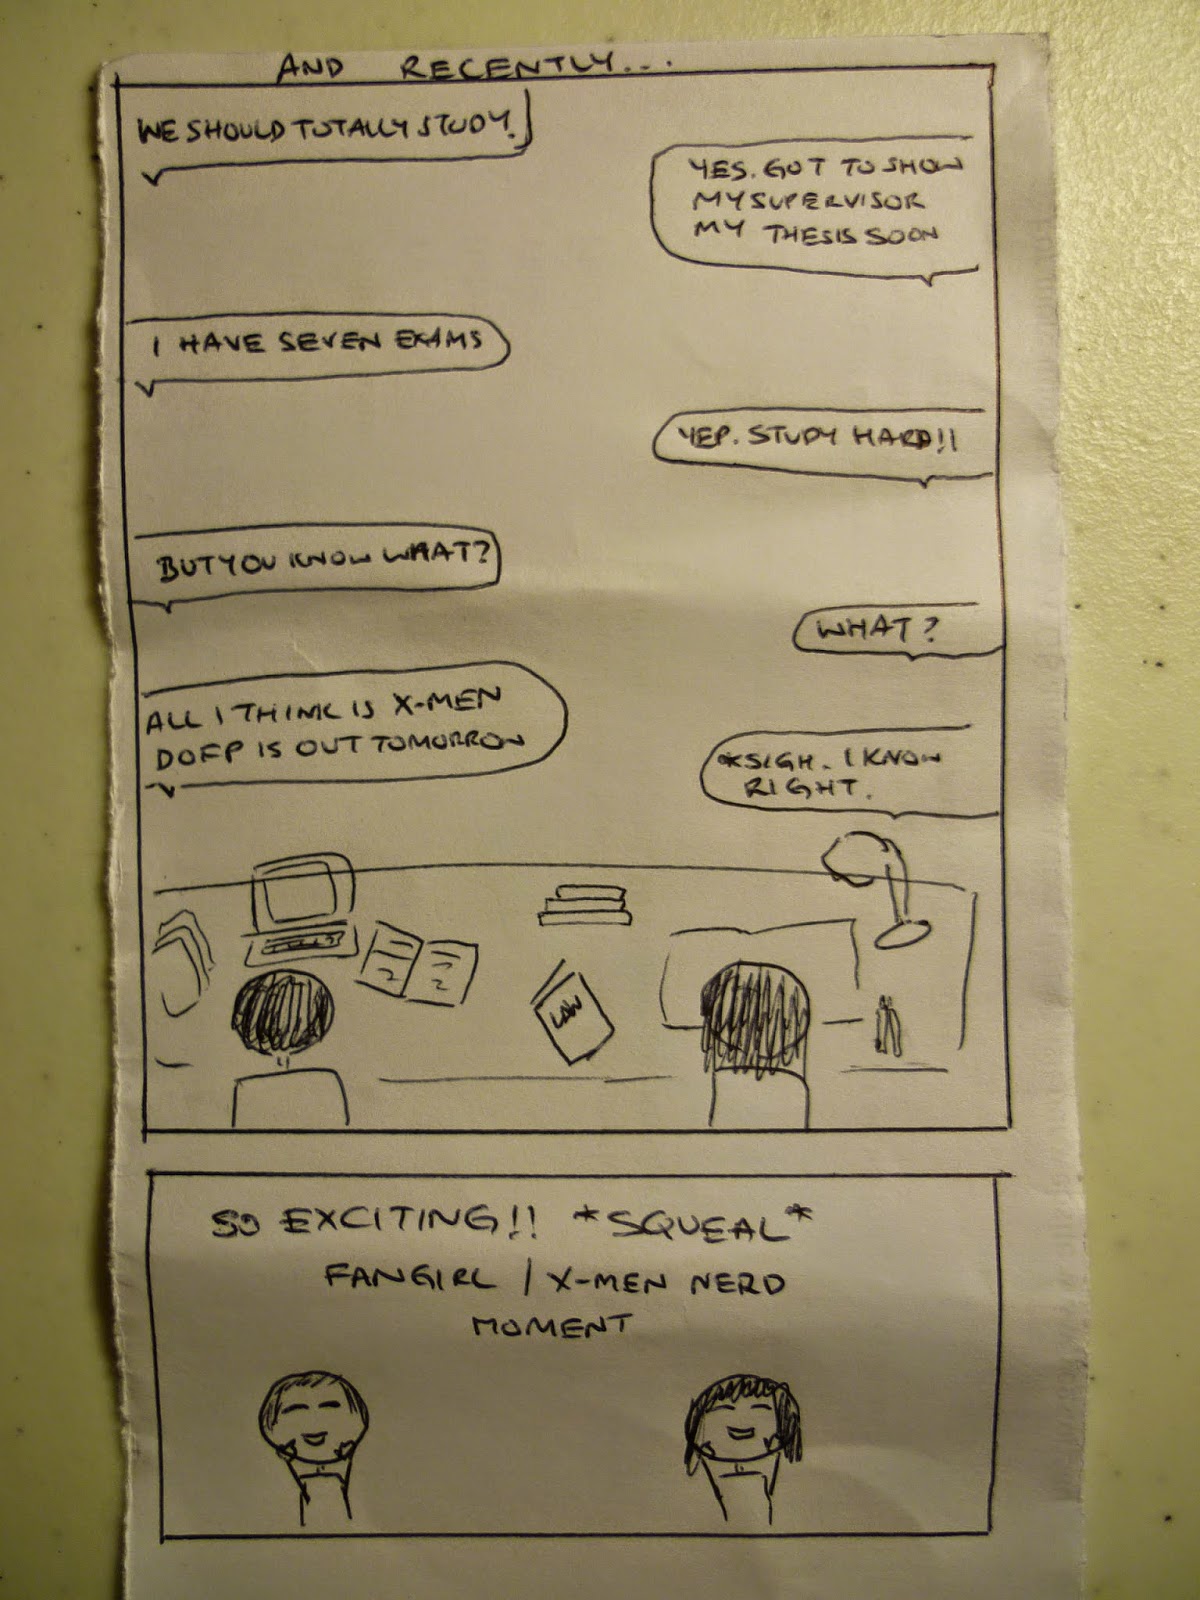 AND RECENTLY...
WE SHOULD TOTALLY STUDY.
YES. GOT TO SHOW
MY SUPERVISOR
MY THESIS SOON
I HAVE SEVEN EXAMS
YEP. STUDY HARD!!
BUT YOU KNOW WHAT?
WHAT?
ALL I THINK IS X-MEN
DOFP IS OUT TOMORROW
*SIGH. I KNOW
RIGHT.
LAW
SO EXCITING!! *SQUEAL*
FANGIRL / X-MEN NERD
MOMENT